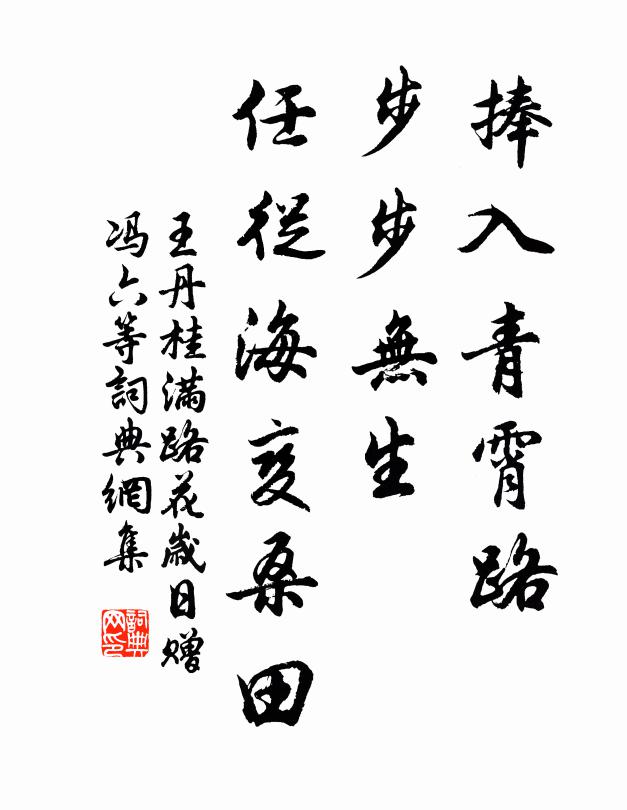 捧入青霄路
步步步無生
任從海变桑田
王丹桂满路花歲日贈
冯六等詞典網集
詞典
网印